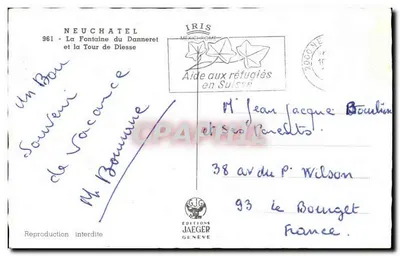 NEUCHATEL
961 - La Fontaine du Danneret
et la Tour de Diesse
IRIS
MEXICHROME
Aide aux réfugiés
en Suisse
DOUANE
un Bon
souvenir
de vacance
M. Bommme
Mr Jean Jacque Bourbin
et ses Parents.
38 av du Pt Wilson
93 le Bourget
France.
CPARAMA
EDITIONS
JAEGER
GENÈVE
Reproduction interdite